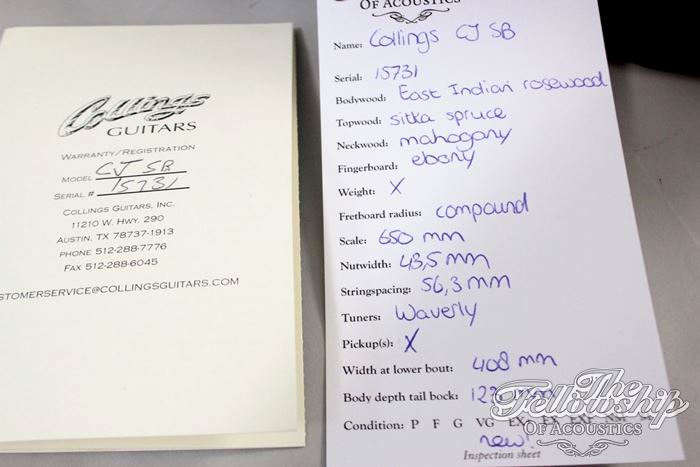 Collings
GUITARS
WARRANTY/REGISTRATION
MODEL CJ SB
SERIAL # 15731
COLLINGS GUITARS, INC.
11210 W. HWY. 290
AUSTIN, TX 78737-1913
PHONE 512-288-7776
FAX 512-288-6045
STOMERSERVICE@COLLINGSGUITARS.COM
OF ACOUSTICS
Name: Collings CJ SB
Serial: 15731
Bodywood: East Indian rosewood
Topwood: sitka spruce
Neckwood: mahogany
Fingerboard: ebony
Weight: X
Fretboard radius: compound
Scale: 650 mm
Nutwidth: 43,5 mm
Stringspacing: 56,3 mm
Tuners: Waverly
Pickup(s): X
Width at lower bout: 408 mm
Body depth tail bock: mm
Condition: P F G VG EX-
new!
Inspection sheet
The
Fellowship
OF ACOUSTICS